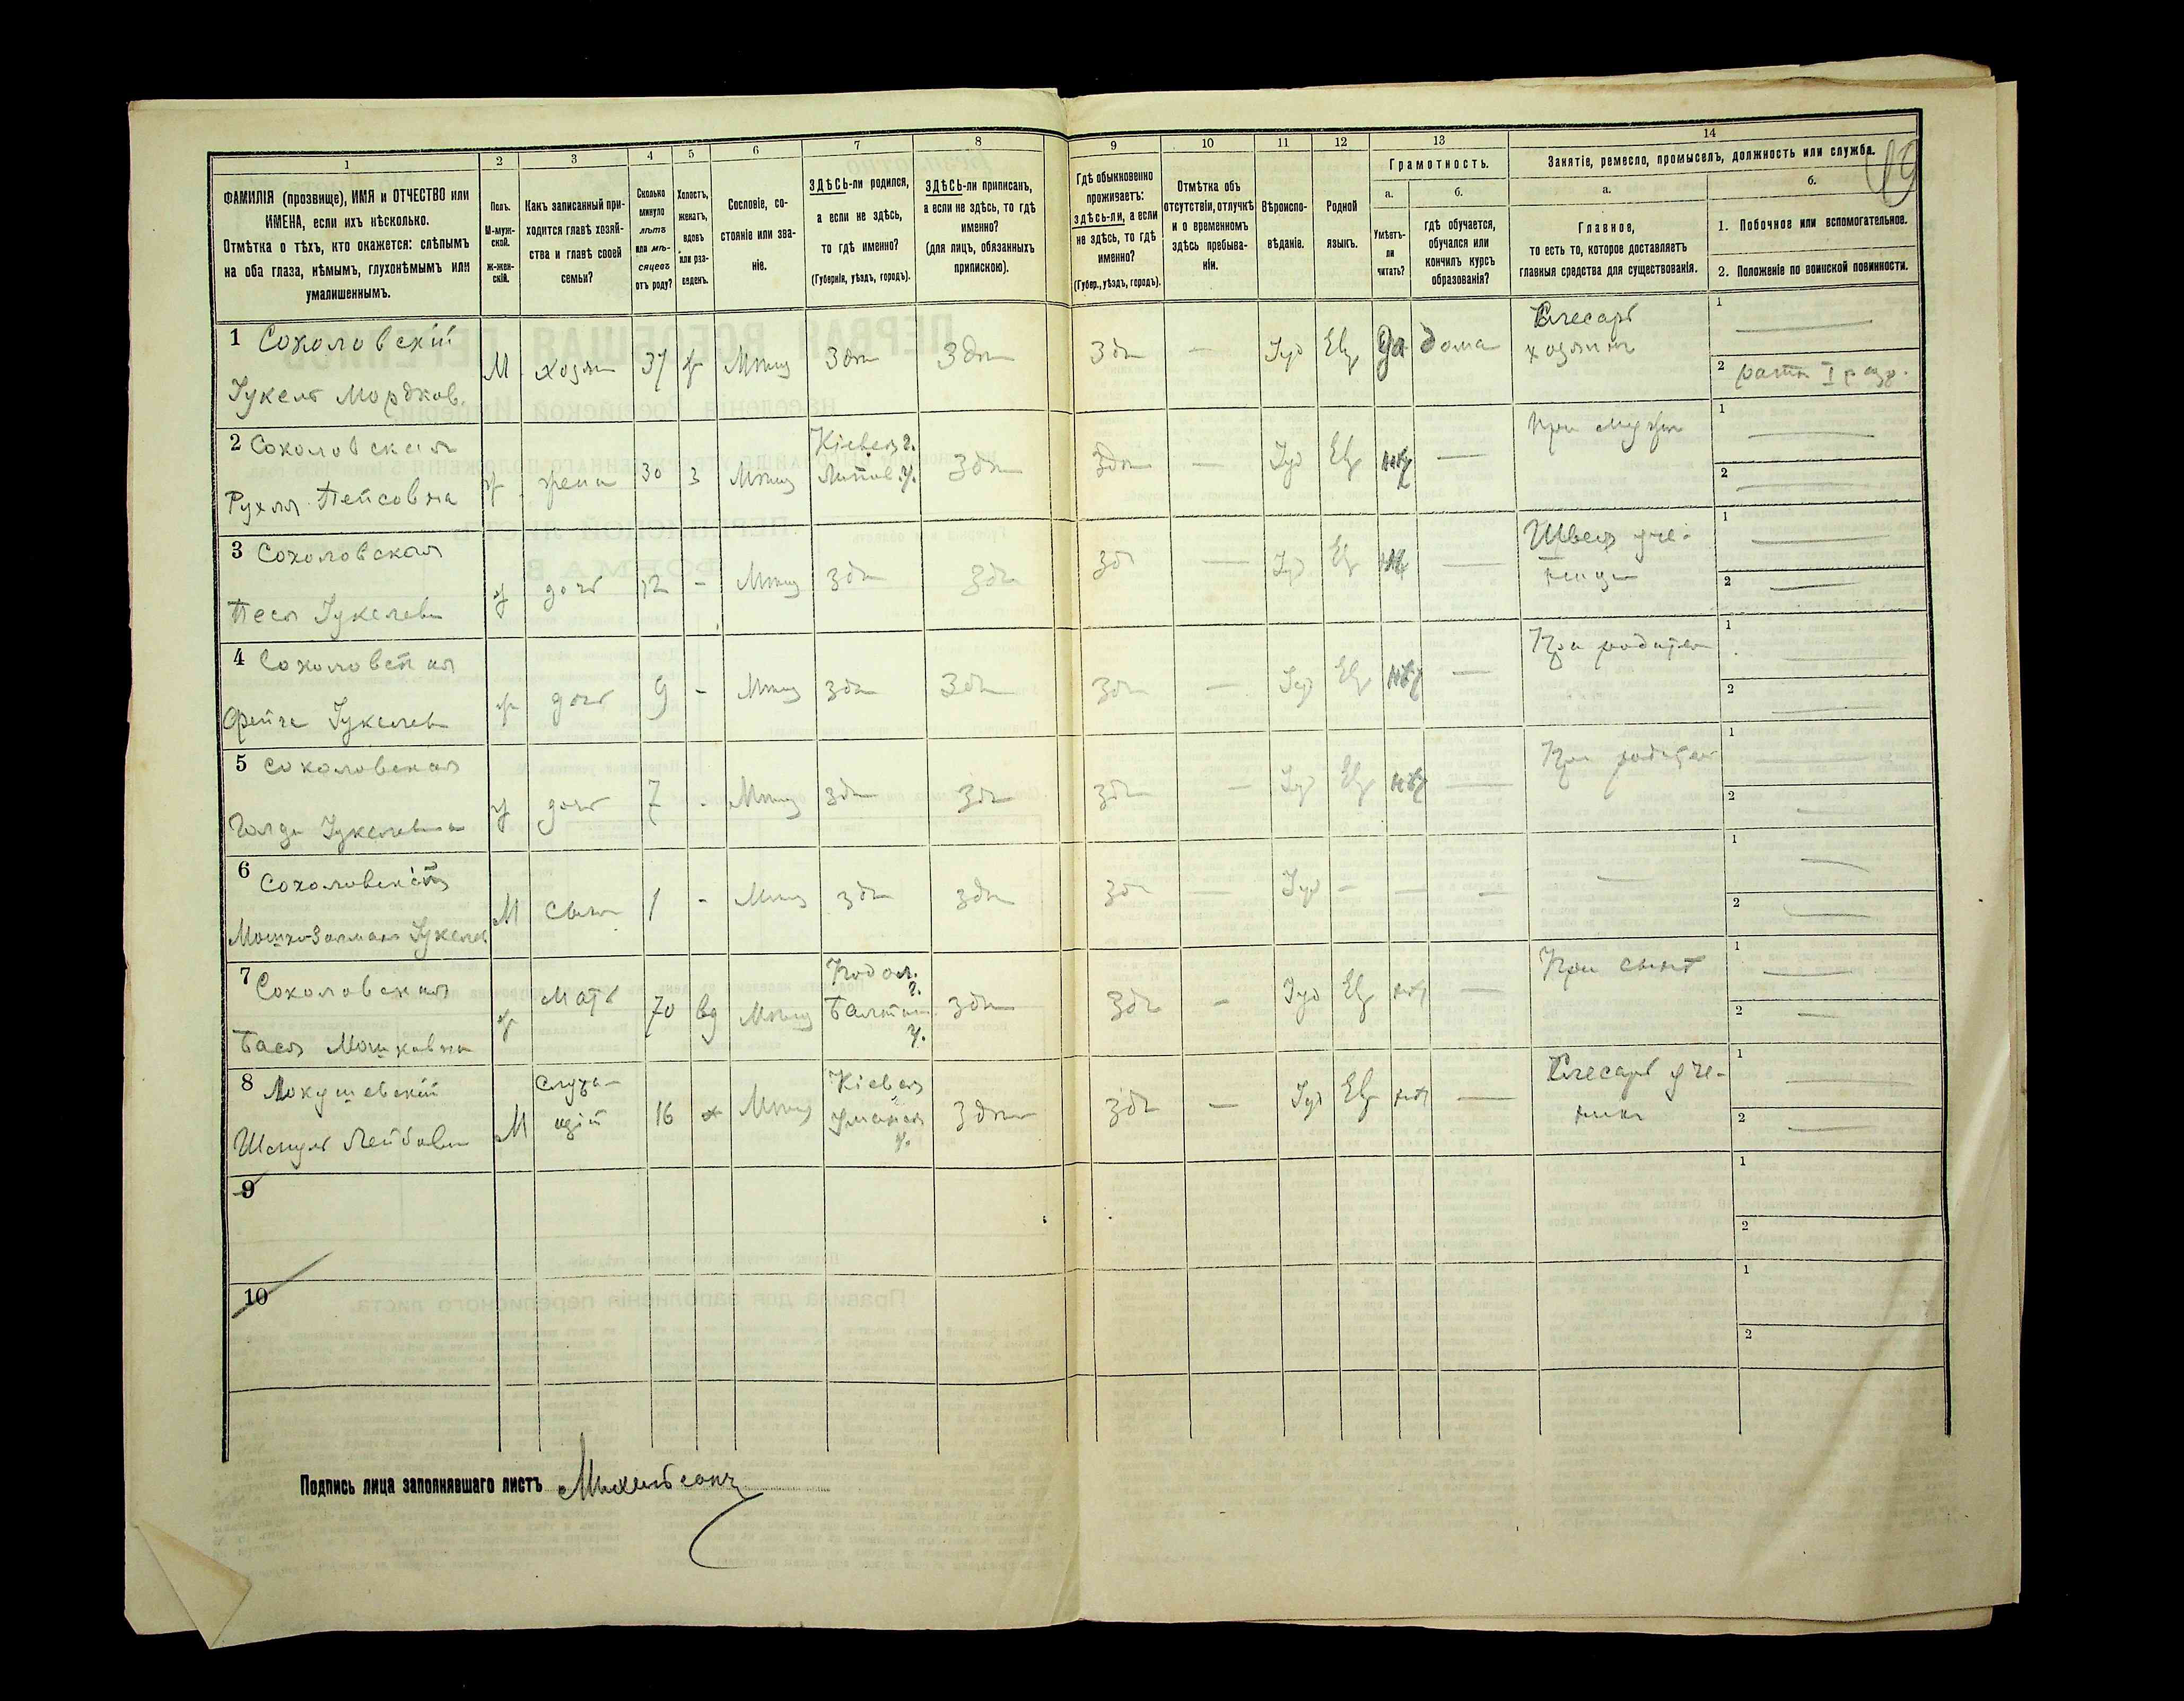 1 2 3 4 5 6 7 8 9 10 11 12 13 14
ФАМИЛІЯ (прозвище), ИМЯ и ОТЧЕСТВО или
ИМЕНА, если ихъ нѣсколько.
Отмѣтка о тѣхъ, кто окажется: слѣпымъ
на оба глаза, нѣмымъ, глухонѣмымъ или
умалишеннымъ.
Полъ.
М-муж-
ской.
Ж-жен-
скій.
Какъ записанный при-
ходится главѣ хозяй-
ства и главѣ своей
семьи?
Сколько
минуло
лѣтъ
или мѣ-
сяцевъ
отъ роду?
Холостъ,
женатъ,
вдовъ
или раз-
веденъ.
Сословіе, со-
стояніе или зва-
ніе.
ЗДѢСЬ-ли родился,
а если не здѣсь,
то гдѣ именно?
(Губернія, уѣздъ, городъ).
ЗДѢСЬ-ли приписанъ,
а если не здѣсь, то гдѣ
именно?
(для лицъ, обязанныхъ
припискою).
Гдѣ обыкновенно
проживаетъ:
здѣсь-ли, а если
не здѣсь, то гдѣ
именно?
(Губер., уѣздъ, городъ).
Отмѣтка объ
отсутствіи, отлучкѣ
и о временномъ
здѣсь пребыва-
ніи.
Вѣроиспо-
вѣданіе.
Родной
языкъ.
Грамотность.
а.
б.
Умѣетъ-
ли
читать?
гдѣ обучается,
обучался или
кончилъ курсъ
образованія?
Занятіе, ремесло, промыселъ, должность или служба.
а.
б.
Главное,
то есть то, которое доставляетъ
главныя средства для существованія.
1. Побочное или вспомогательное.
2. Положеніе по воинской повинности.
1 Соколовскій
Іукель Мордков.
М 37 ж Здѣ Здѣ Здѣ — Іуд Евр да дома
Слесарь
хозяинъ
1 —
2 ратн I разр.
2 Соколовская
Рухля Пейсовна
ж жена 30 з
Кіевск г.
Липов. у.
Здѣ Здѣ — Іуд Евр нѣт —
При мужѣ
1 —
2 —
3 Соколовская
Песя Іукелев
ж дочь 12 - здѣ здѣ зд — Іуд Ев —
Швея уче-
ница
1 —
2 —
4 Соколовская
Фейга Іукелев
ж дочь 9 - здѣ Здѣ Здѣ — Іуд Евр нѣт —
При родител
1 —
2 —
5 Соколовская
Голда Іукелевна
ж дочь 7 - здѣ здѣ здѣ — Іуд Евр нѣт —
При родител
1 —
2 —
6 Соколовскій
Мошко-Залман Іукелев
М сынъ 1 - здѣ здѣ зд — Іуд — — — —
1 —
2 —
7 Соколовская
Бася Мошковна
ж мать 70 вд
Подол.
г.
Балтск
у.
здѣ здѣ — Іуд Евр нѣт —
При сынѣ
1 —
2 —
8
Шмуль Лейбов
М
служа-
щій
16 х
Кіевск
уманск
у.
Здѣ здѣ — Іуд Евр нѣт —
Слесарь уче-
никъ
1 —
2 —
9
1
2
10
1
2
Подпись лица заполнявшаго листъ Михельсонъ